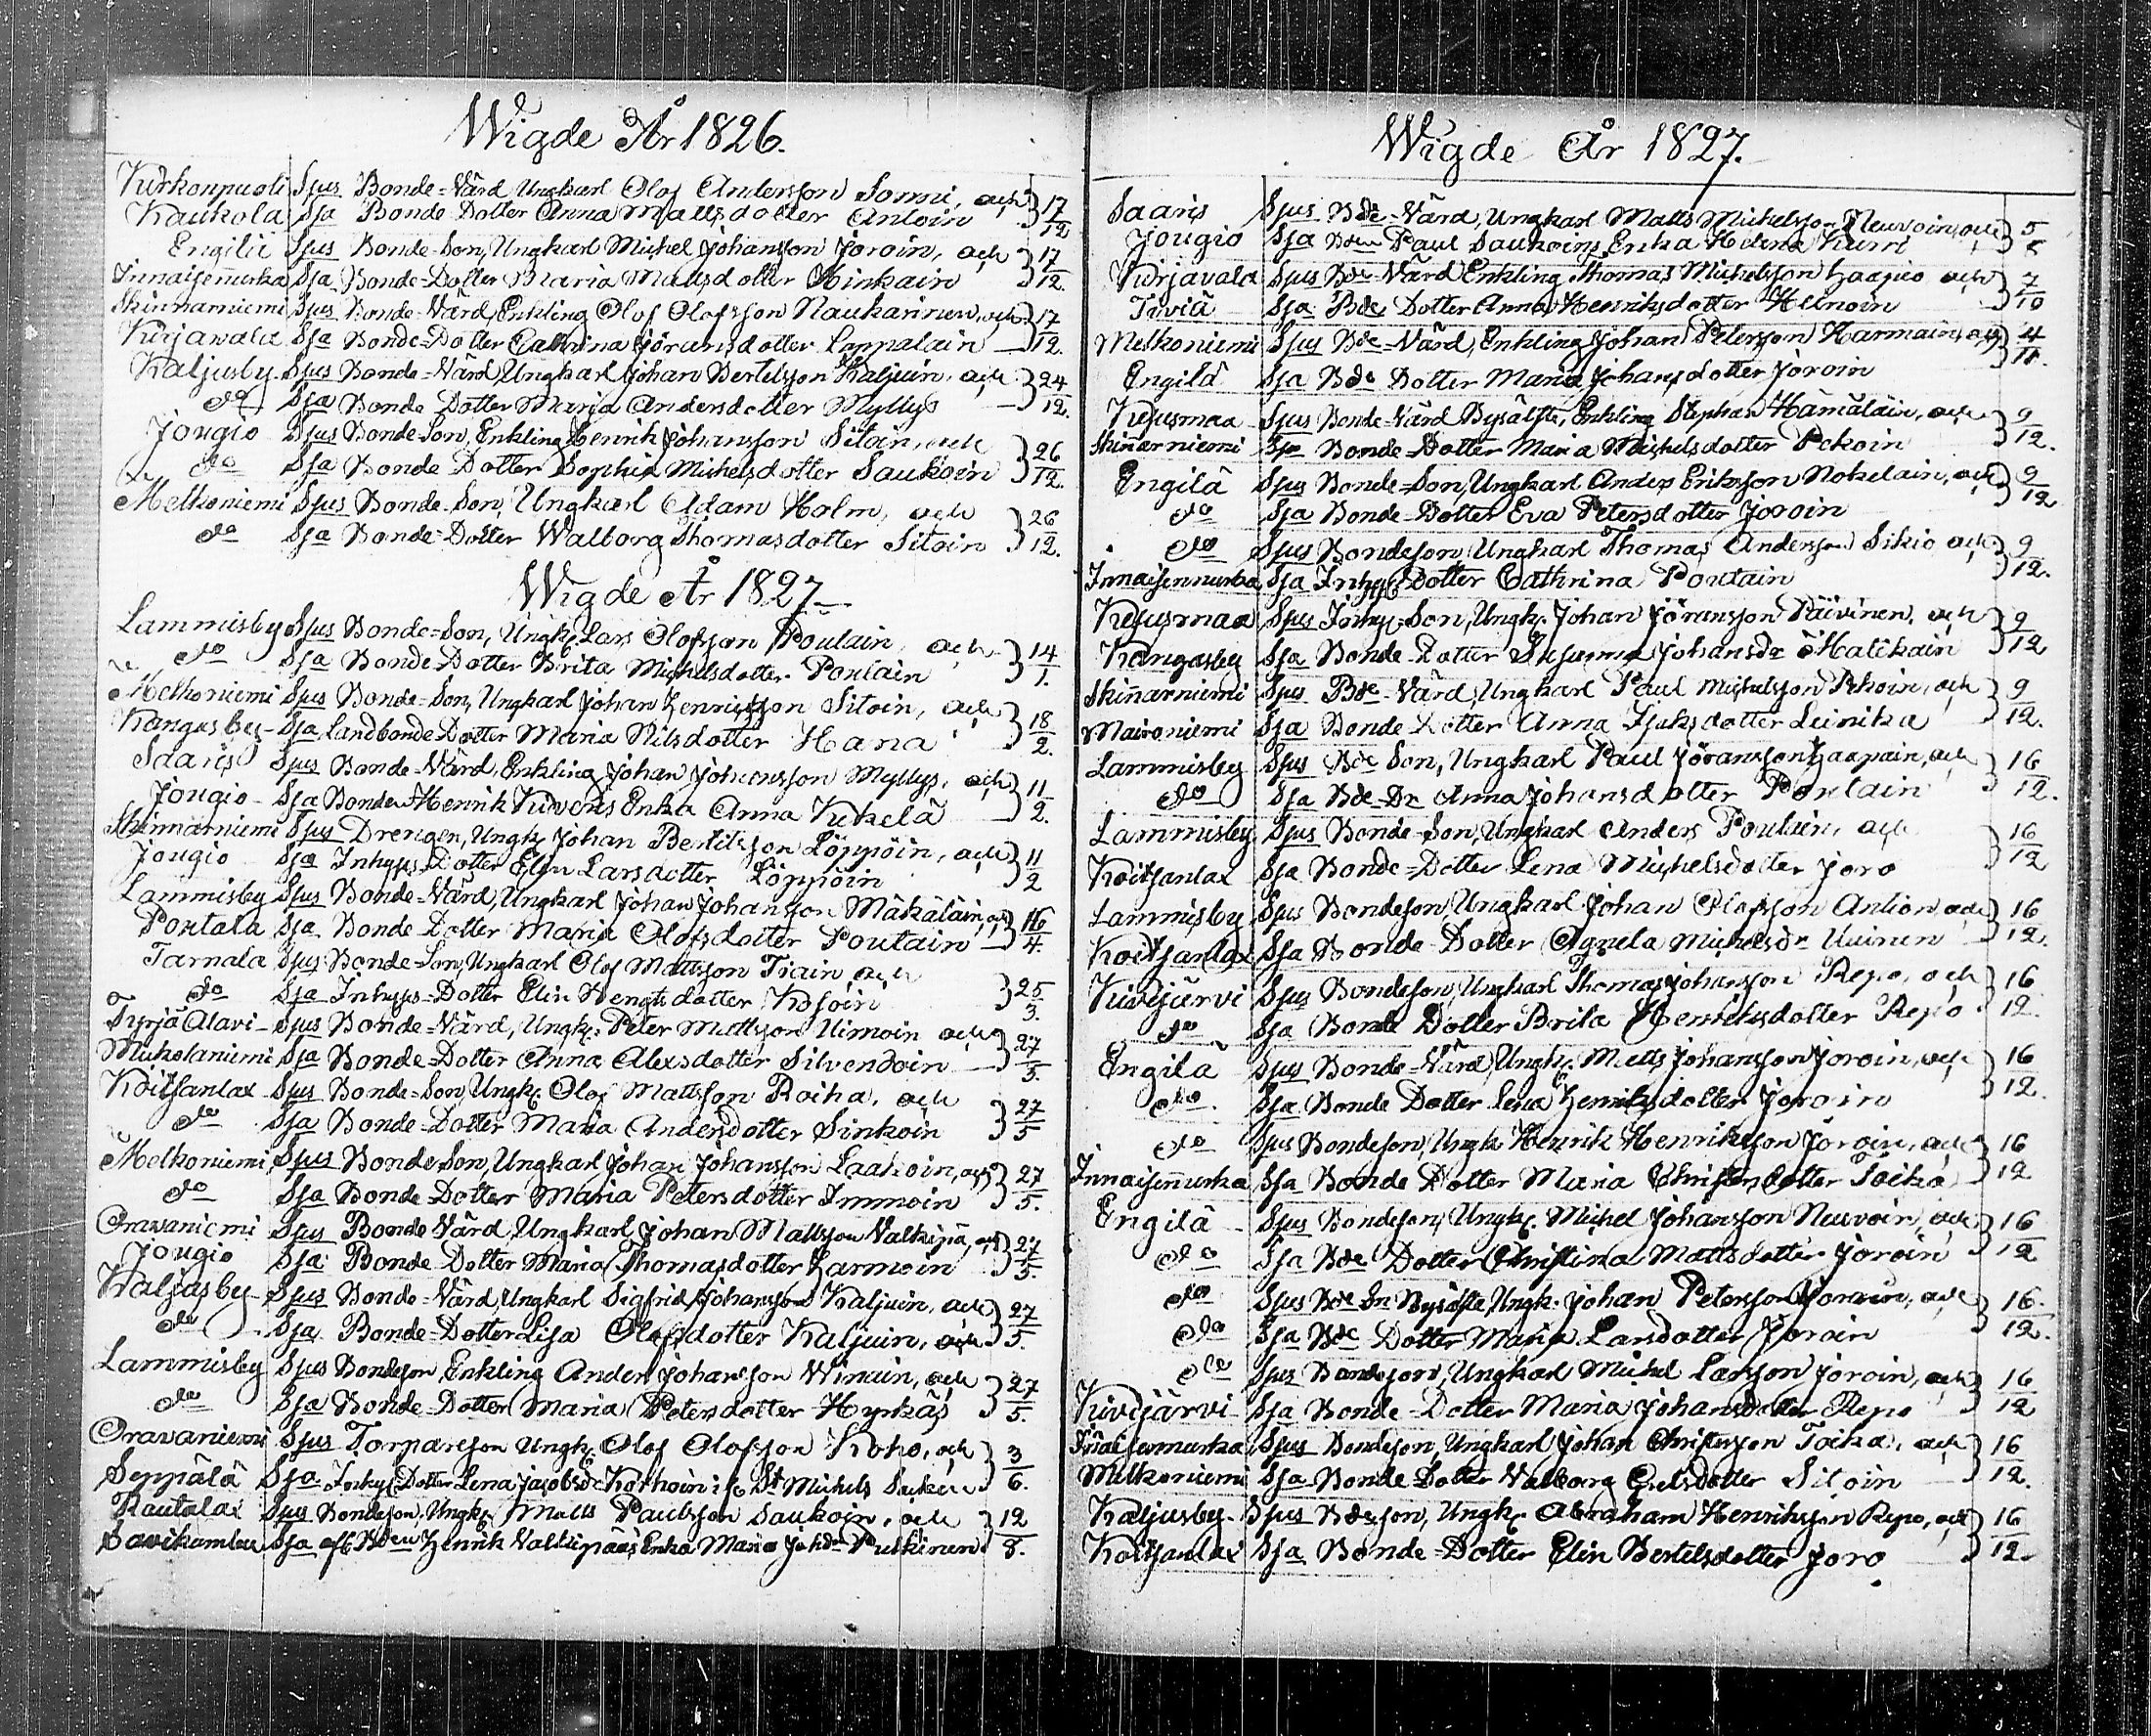 Wigde År 1826.
Kirkonpuoli Spus Bonde-Värd Ungkarl Olof Andersson Sonni, och } 17
Kaukola Sja Bonde-Dotter Anna Mattsdotter Antoin } 12
Engilä Spus Bonde-Son, Ungkarl Michel Johansson Joroin, och } 17
Innaisennurka Sja Bonde-Dotter Maria Mattsdotter Hinkain } 12.
Skinnarniemi Spus Bonde-Värd, Enkling Olof Olofsson Naukarinen, och } 17
Kirjavala Sja Bonde-Dotter Cathrina Göransdotter Lappalain } 12.
Kaljusby Spus Bonde-Värd Ungkarl Johan Bertelsson Kaljuin, och } 24
do Sja Bonde Dotter Maria Andersdotter Myllys } 12.
Jougio Spus Bonde-Son, Enkling Henrik Johansson Sitoin, och } 26
do Sja Bonde-Dotter Sophia Michelsdotter Saukoin } 12.
Melkoniemi Spus Bonde-Son, Ungkarl Adam Holm, och } 26
do Sja Bonde-Dotter Walborg Thomasdotter Sitoin } 12.
Wigde År 1827
Lammisby Spus Bonde-Son, Ungk. Lars Olofsson Poutain, och } 14
do Sja Bonde-Dotter Brita Michelsdotter Poutain } 1.
Melkoniemi Spus Bonde-Son, Ungkarl Johan Henriksson Sitoin, och } 18
Kangasby Sja Landbonde-Dotter Maria Nilsdotter Hana } 2.
Saaris Spus Bonde-Värd, Enkling Johan Johansson Myllys, och } 11
Jougio Sja Bonden Henrik Kivens Enka Anna Kekelä } 2.
Skinnarniemi Spus Drengen, Ungk. Johan Bertilsson Löppöin, och } 11
Jougio Sja Inhyss-Dotter Elin Larsdotter Löppöin } 2
Lammisby Spus Bonde-Värd, Ungkarl Johan Johansson Mäkäläin, och } 16
Poutala Sja Bonde Dotter Maria Olofsdotter Poutain } 4.
Tarnala Spus Bonde-Son, Ungkarl Olof Mattsson Tiain, och } 25
do Sja Inhyss-Dotter Elin Bengtsdotter Kosoin } 3.
Tyrjä Alavi Spus Bonde-Värd, Ungk. Peter Mattsson Uimoin och } 27
Mickolaniemi Sja Bonde-Dotter Anna Alexsdotter Silvendoin } 5.
Koitsanlax Spus Bonde-Son, Ungk. Olof Mattsson Roiha, och } 27
do Sja Bonde-Dotter Maria Andersdotter Sinkoin } 5
Melkoniemi Spus Bonde Son, Ungkarl Johan Johansson Laakoin, och } 27
do Sja Bonde-Dotter Maria Petersdotter Immoin } 5.
Oravaniemi Spus Bonde Värd, Ungkarl Johan Mattsson Valkipä, och } 27
Jougio Sja Bonde Dotter Maria Thomasdotter Harmoin } 5.
Kaljasby Spus Bonde-Värd, Ungkarl Sigfrid Johansson Kaljuin, och } 27
do Sja Bonde-Dotter Lisa Olofsdotter Kaljuin, och } 5.
Lammisby Spus Bondeson, Enkling Anders Johansson Winain, och } 27
do Sja Bonde-Dotter Maria Petersdotter Hyrkäs } 5.
Oravaniemi Spus Torpareson Ungk. Olof Olofsson Koho, och } 3
Seppälä Sja Inhys Dotter Lena Jacobsdr Korhoin if. St Michels Socken } 6.
Rautalax Spus Bondeson, Ungk. Matts Paulsson Saukoin, och } 12
Savikumbu Sja afl. Bden Henrik Valkepääs Enka Maria Johdr Pulkinen } 8.
Wigde År 1827.
Saaris Spus Bde-Värd, Ungkarl Matts Michelsson Neuvoin, och } 5
Jougio Sja Bden Paul Saukoins Enka Helena Kurri } 8
Kirjavala Spus Bde-Värd Enkling Thomas Michelsson Haapio och } 7
Tiviä Sja Bde Dotter Anna Henriksdotter Heinoin } 10
Melkoniemi Spus Bde-Värd, Enkling Johan Petersson Harmain, och } 4
Engilä Sja Bde Dotter Maria Johansdotter Joroin } 11.
Kesusmaa Spus Bonde-Värd Bysälste, Enkling Stephan Hämäläin, och } 9
Skinnarniemi Sja Bonde-Dotter Maria Michelsdotter Pekoin } 12.
Engilä Spus Bonde-Son, Ungkarl Anders Eriksson Nokelain, och } 9
do Sja Bonde-Dotter Eva Petersdotter Joroin } 12
do Spus Bondeson, Ungkarl Thomas Andersson Sikiö och } 9
Innaisennurka Sja Inhys Dotter Cathrina Poutain } 12.
Kesusmaa Spus Inhys-Son, Ungk. Johan Göransson Päivinen, och } 9
Kangasby Sja Bonde-Dotter Susanna Johansdr Malckain } 12
Skinnarniemi Spus Bde-Värd, Ungkarl Paul Michelsson Pekoin, och } 9
Maironiemi Sja Bonde Dotter Anna Isaksdotter Leinika } 12.
Lammisby Spus Bde Son, Ungkarl Paul Göransson Haapain, och } 16
do Sja Bde-Dr Anna Johansdotter Poutain } 12.
Lammisby Spus Bonde-Son, Ungkarl Anders Poutain, och } 16
Koitsanlax Sja Bonde-Dotter Lena Michelsdotter Joro } 12
Lammisby Spus Bondeson, Ungkarl Johan Olofsson Antion, och } 16
Koitsanlax Sja Bonde-Dotter Agnela Michelsdr Uuinen } 12.
Kivijärvi Spus Bondeson, Ungkarl Thomas Johansson Repo, och } 16
do Sja Bonde Dotter Brita Henriksdotter Repo } 12.
Engilä Spus Bonde-Värd, Ungk. Matts Johansson Joroin, och } 16
do Sja Bonde Dotter Lena Henriksdotter Joroin } 12.
do Spus Bondeson, Ungk. Henrik Henriksson Joroin, och } 16
Innaisennurka Sja Bonde Dotter Maria Christersdotter Toika } 12
Engilä Spus Bondeson, Ungk. Michel Johansson Neuvoin, och } 16
do Sja Bde Dotter Christina Mattsdotter Joroin } 12
do Spus Bde Sn Bysälste Ungk. Johan Petersson Joroin, och } 16.
do Sja Bde Dotter Maria Larsdotter Joroin } 12.
do Spus Bondeson, Ungkarl Michel Larsson Joroin, och } 16
Kivijärvi Sja Bonde-Dotter Maria Johansdotter Repo } 12
Innaisennurka Spus Bondeson, Ungkarl Johan Christersson Toika, och } 16
Melkoniemi Sja Bonde Dotter Valborg Eselsdotter Sitoin } 12.
Kaljusby Spus Bdeson, Ungk. Abraham Henriksson Repo, och } 16
Koitsanlax Sja Bonde-Dotter Elin Bertelsdotter Joro } 12.